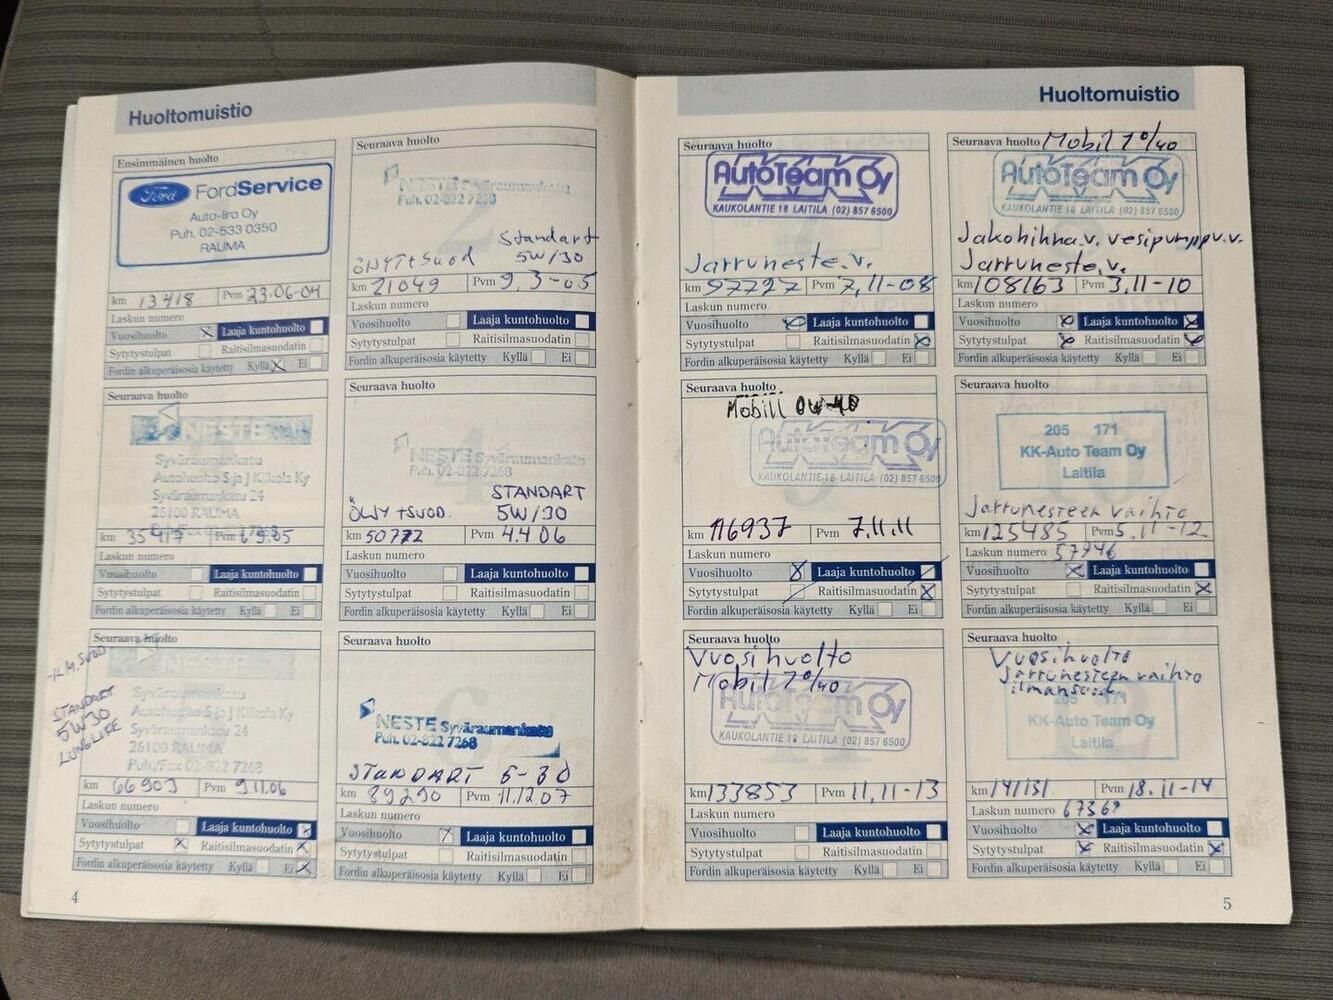 Huoltomuistio
Ensimmäinen huolto
Ford FordService
Auto-Iiro Oy
Puh. 02-533 0350
RAUMA
km 13418 Pvm 23.06-04
Laskun numero
Vuosihuolto Laaja kuntohuolto
Sytytystulpat Raitisilmasuodatin
Fordin alkuperäisosia käytetty Kyllä Ei
Seuraava huolto
NESTE Syväraumankatu
Puh. 02-822 7268
Standart
ÖLJY+Suod 5W/30
km 21049 Pvm 9.3-05
Laskun numero
Vuosihuolto Laaja kuntohuolto
Sytytystulpat Raitisilmasuodatin
Fordin alkuperäisosia käytetty Kyllä Ei
Seuraava huolto
NESTE
Syväraumankatu
Autohuolto S ja J Kiikola Ky
Syväraumankatu 24
26100 RAUMA
km 35417 Pvm 6.9.05
Laskun numero
Vuosihuolto Laaja kuntohuolto
Sytytystulpat Raitisilmasuodatin
Fordin alkuperäisosia käytetty Kyllä Ei
Seuraava huolto
NESTE Syväraumankatu
Puh. 02-822 7268
STANDART
ÖLJY +SUOD. 5W/30
km 50772 Pvm 4.4.06
Laskun numero
Vuosihuolto Laaja kuntohuolto
Sytytystulpat Raitisilmasuodatin
Fordin alkuperäisosia käytetty Kyllä Ei
Seuraava huolto
-ILM.SUOD
STANDART
5W30
LONGLIFE
NESTE
Syväraumankatu
Autohuolto S ja J Kiikola Ky
Syväraumankatu 24
26100 RAUMA
Puh./Fax 02-822 7268
km 66903 Pvm 9.11.06
Laskun numero
Vuosihuolto Laaja kuntohuolto
Sytytystulpat Raitisilmasuodatin
Fordin alkuperäisosia käytetty Kyllä Ei
Seuraava huolto
NESTE Syväraumankatu
Puh. 02-822 7268
STANDART 5-30
km 89290 Pvm 11.12.07
Laskun numero
Vuosihuolto Laaja kuntohuolto
Sytytystulpat Raitisilmasuodatin
Fordin alkuperäisosia käytetty Kyllä Ei
4
Huoltomuistio
Seuraava huolto
AutoTeam Oy
KAUKOLANTIE 18 LAITILA (02) 857 6500
Jarruneste.v.
km 97727 Pvm 7.11-08
Laskun numero
Vuosihuolto Laaja kuntohuolto
Sytytystulpat Raitisilmasuodatin
Fordin alkuperäisosia käytetty Kyllä Ei
Seuraava huolto Mobil 1 0/40
AutoTeam Oy
KAUKOLANTIE 18 LAITILA (02) 857 6500
Jakohihna.v. vesipumppu.v.
Jarruneste.v.
km 108163 Pvm 3.11-10
Laskun numero
Vuosihuolto Laaja kuntohuolto
Sytytystulpat Raitisilmasuodatin
Fordin alkuperäisosia käytetty Kyllä Ei
Seuraava huolto
Mobill 0W-40
AutoTeam Oy
KAUKOLANTIE 18 LAITILA (02) 857 6500
km 116937 Pvm 7.11.11
Laskun numero
Vuosihuolto Laaja kuntohuolto
Sytytystulpat Raitisilmasuodatin
Fordin alkuperäisosia käytetty Kyllä Ei
Seuraava huolto
205 171
KK-Auto Team Oy
Laitila
Jarrunesteen vaihto
km 125485 Pvm 5.11-12
Laskun numero 57746
Vuosihuolto Laaja kuntohuolto
Sytytystulpat Raitisilmasuodatin
Fordin alkuperäisosia käytetty Kyllä Ei
Seuraava huolto
Vuosihuolto
Mobil 1 0/40
AutoTeam Oy
KAUKOLANTIE 18 LAITILA (02) 857 6500
km 133853 Pvm 11.11-13
Laskun numero
Vuosihuolto Laaja kuntohuolto
Sytytystulpat Raitisilmasuodatin
Fordin alkuperäisosia käytetty Kyllä Ei
Seuraava huolto
Vuosihuolto
Jarrunesteen vaihto
ilmansuod.
205 171
KK-Auto Team Oy
Laitila
km 141131 Pvm 18.11-14
Laskun numero 67367
Vuosihuolto Laaja kuntohuolto
Sytytystulpat Raitisilmasuodatin
Fordin alkuperäisosia käytetty Kyllä Ei
5